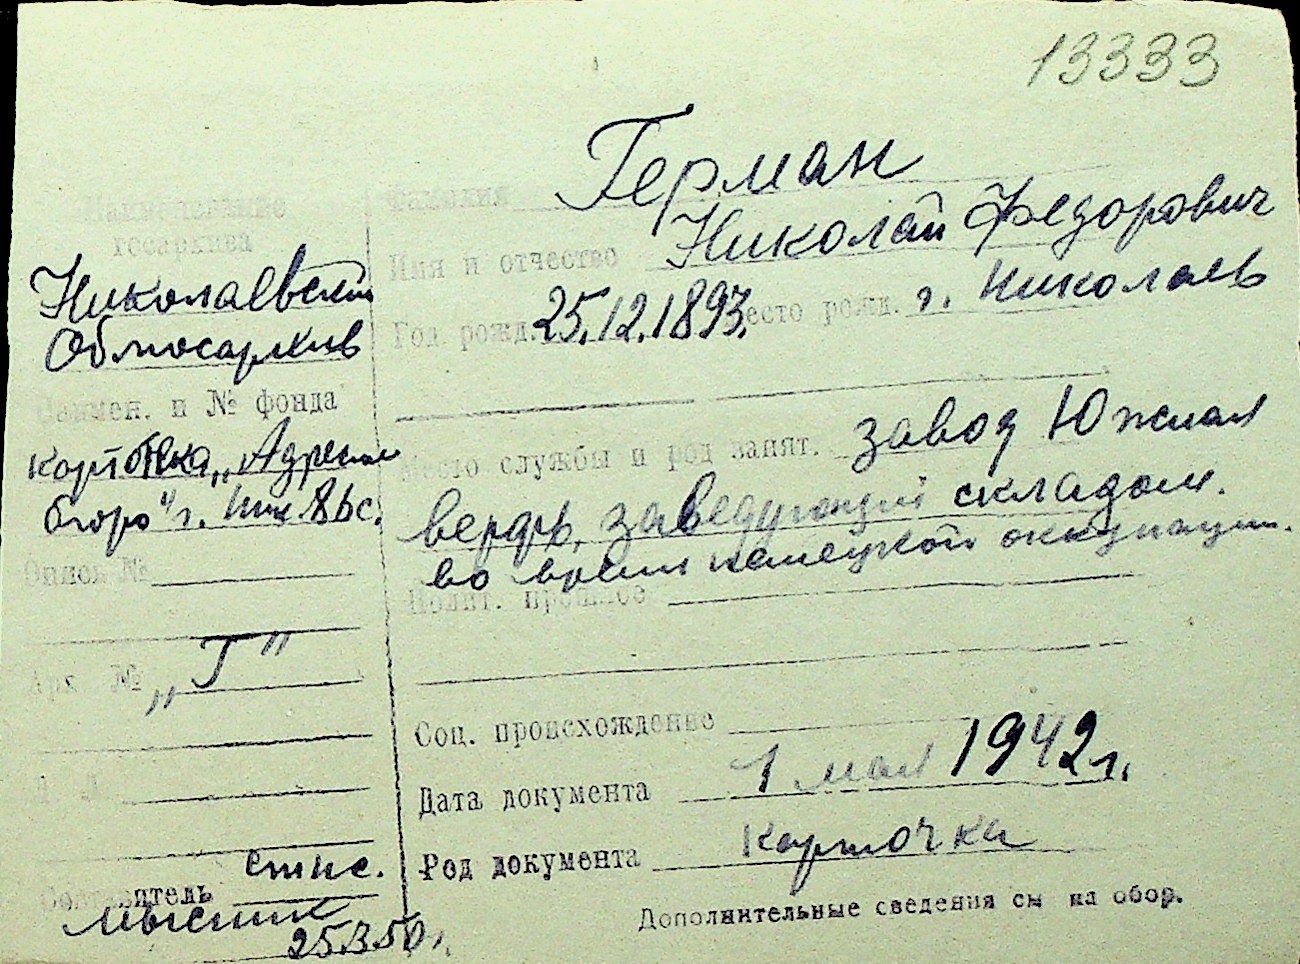 13333
Наименование
госархива
Николаевский
Облгосархив
Наимен. и № фонда
картотека „Адресн
бюро" г. Ник
Опись №
Арх №
„Г"
Л Л
Составитель
25.3.50г.
Фамилия Герман
Имя и отчество Николай Федорович
Год рожд. 25.12.1893. место рожд. г. Николаев
Место службы и род занят. завод Южная
верфь, заведующий складом.
во время немецкой оккупации.
Полит. прошлое
Соц. происхождение
Дата документа 1 мая 1942г.
Род документа карточка
Дополнительные сведения см на обор.